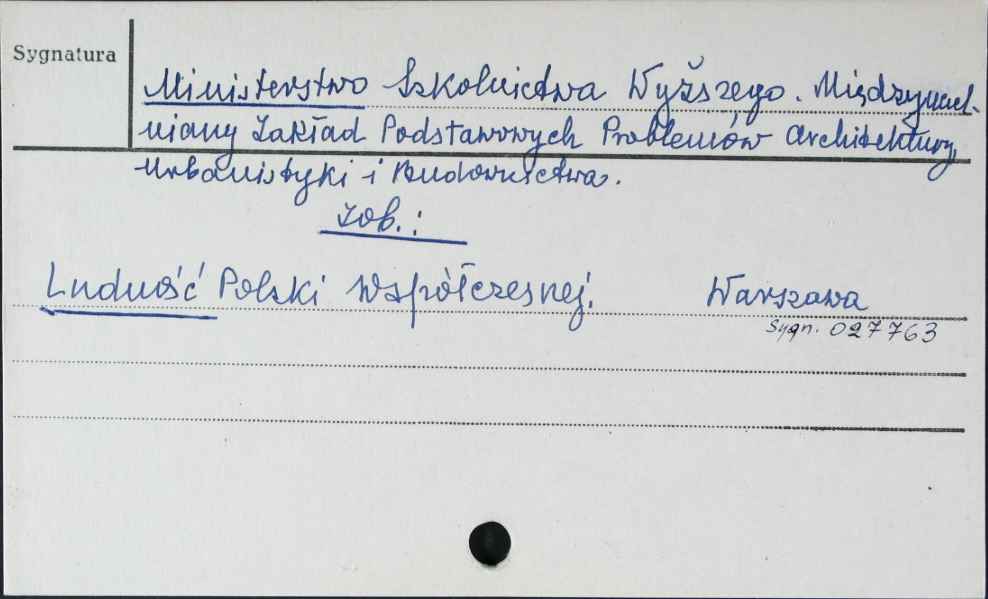 Sygnatura
Ministerstwo Szkolnictwa Wyższego. Międzyuczel-
niany Zakład Podstawowych Problemów Architektury,
Urbanistyki i Budownictwa.
Zob.:
Ludność Polski Współczesnej. Warszawa
Sygn. 027763